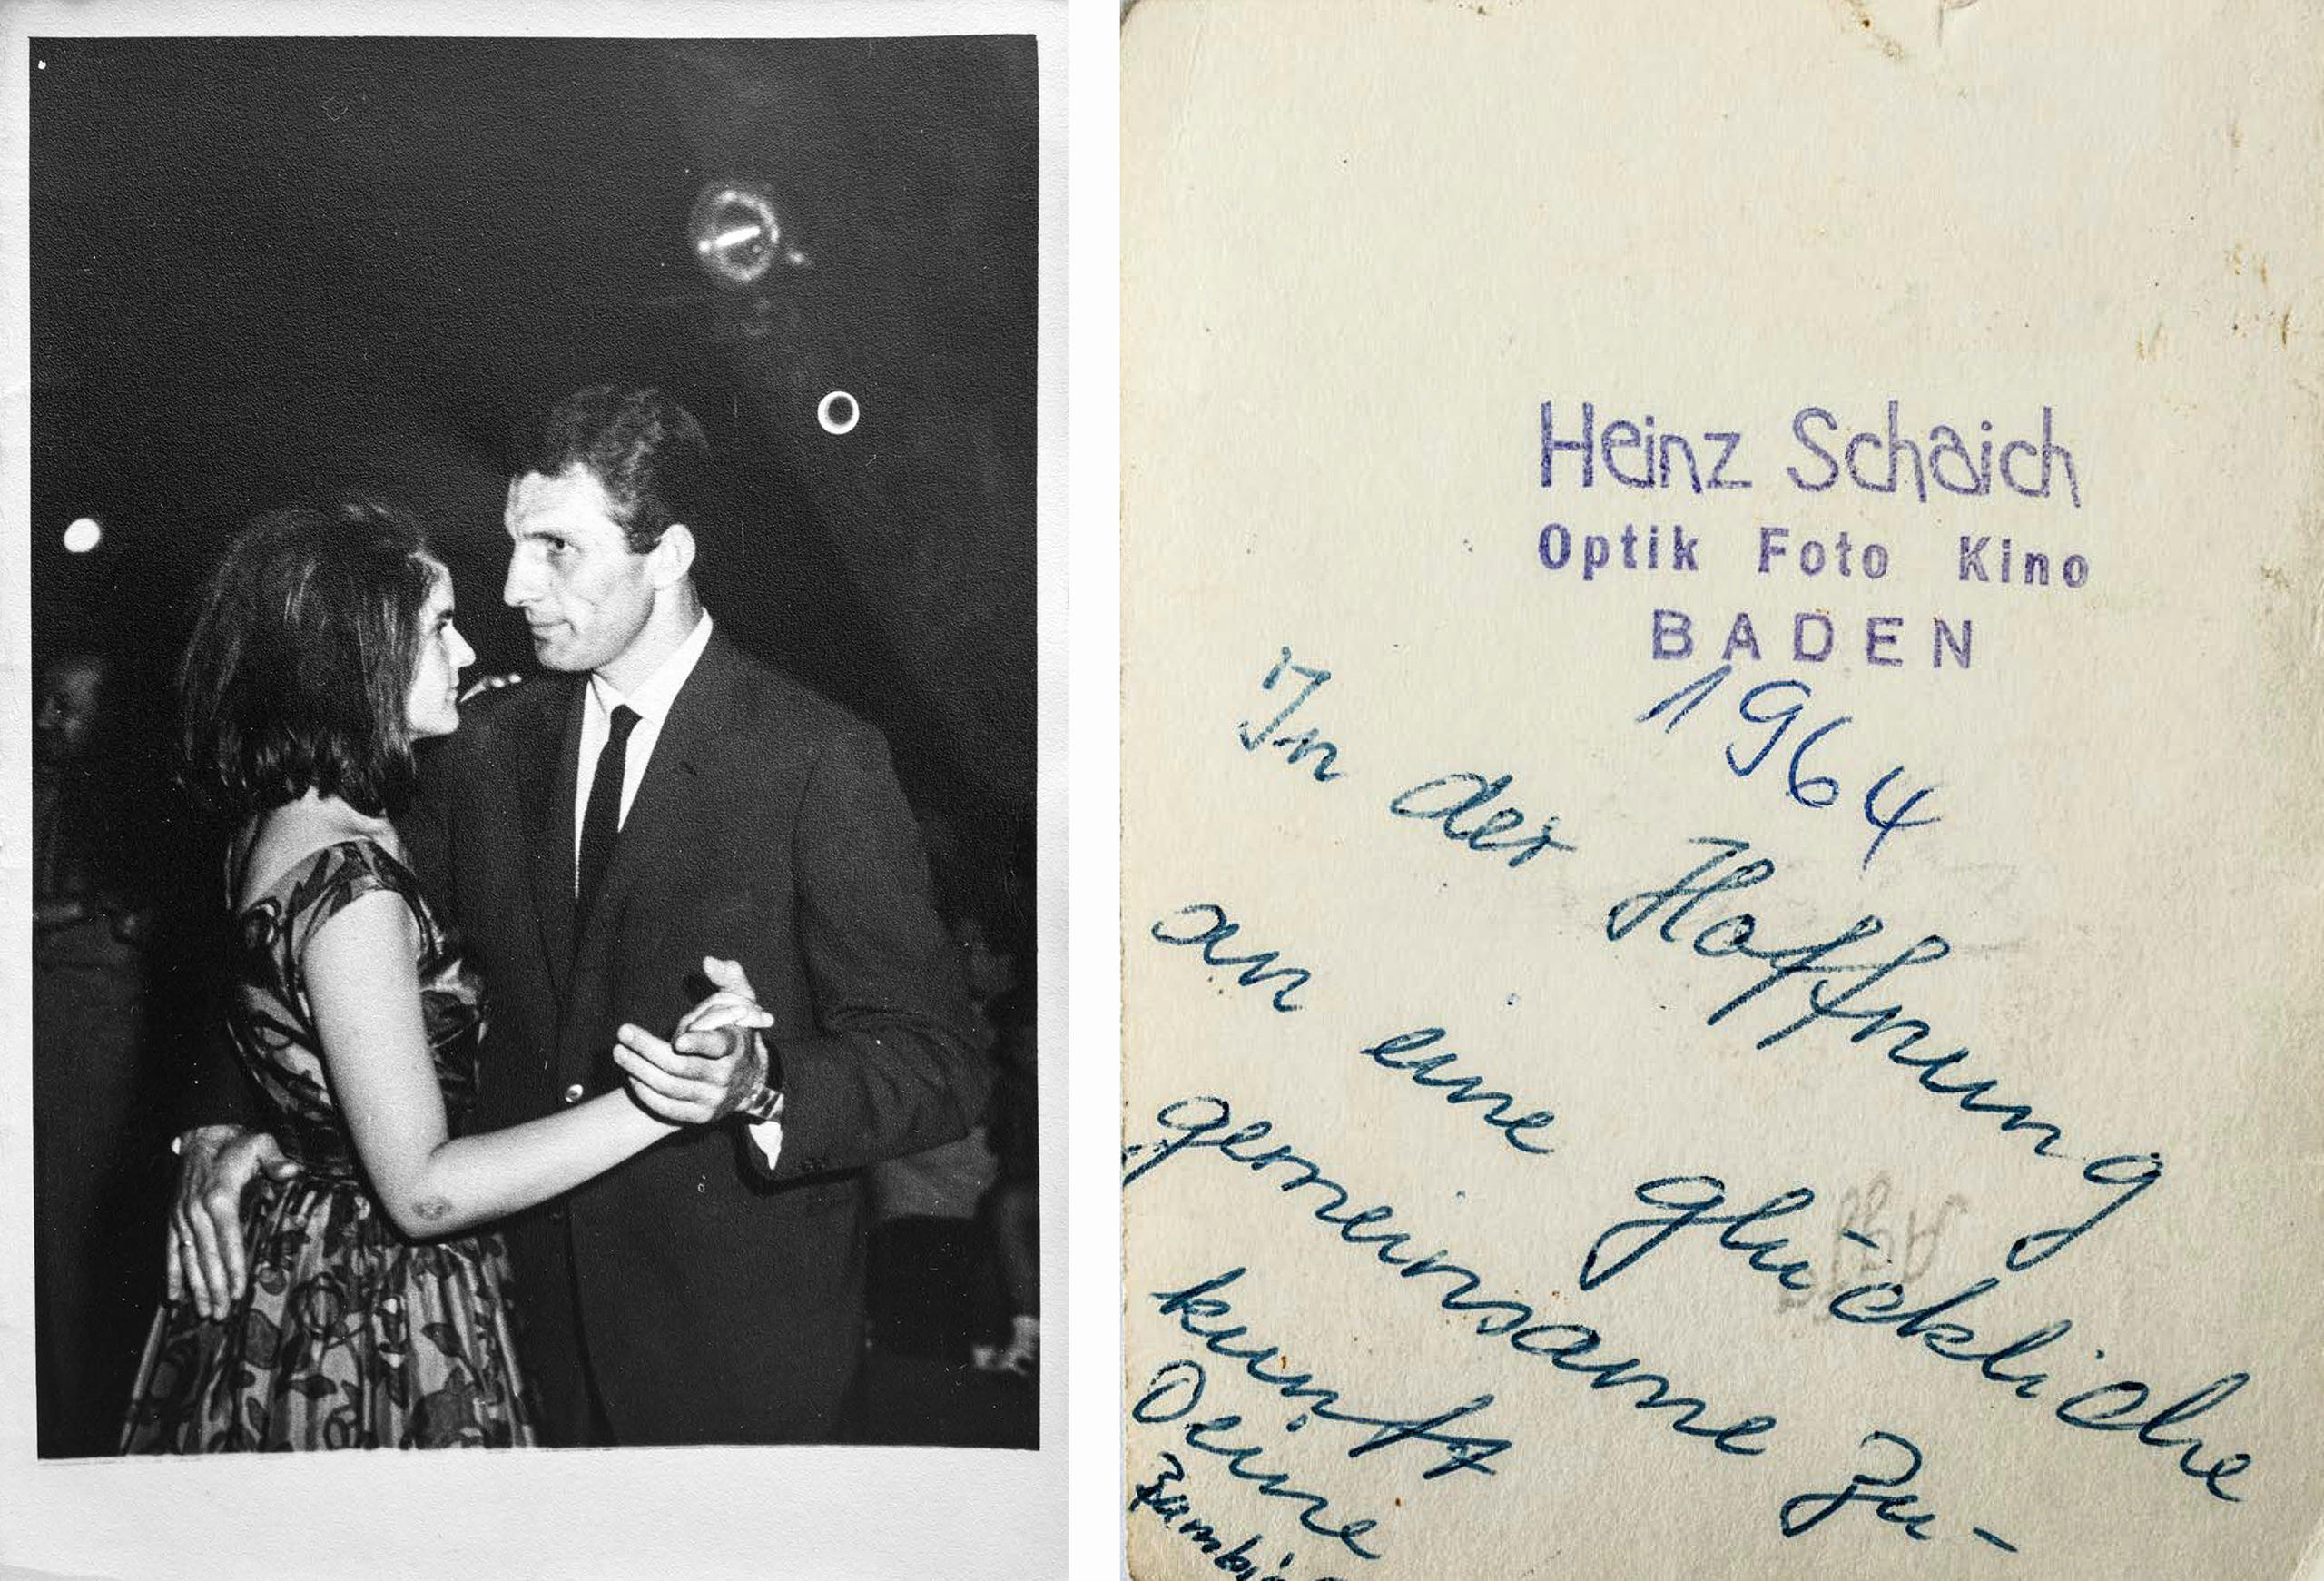 Heinz Schaich
Optik Foto Kino
BADEN
1964
In der Hoffnung
an eine glückliche
gemeinsame Zu-
kunft
Deine